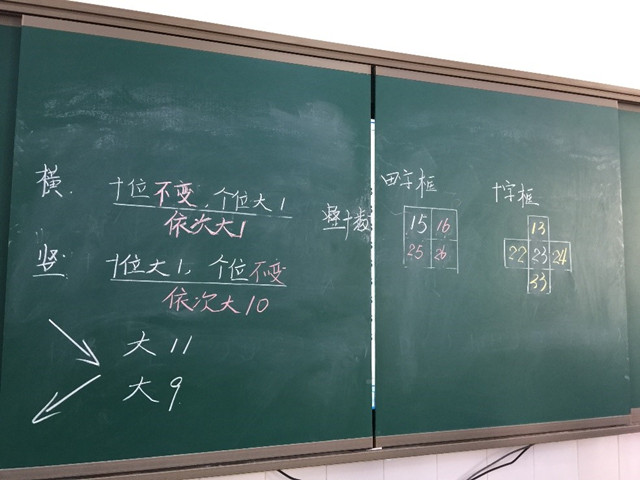 横: 十位不变,个位大1
依次大1
竖: 十位大1,个位不变
依次大10
大11
大9
整十数
田字框
15 16
25 26
十字框
13
22 23 24
33